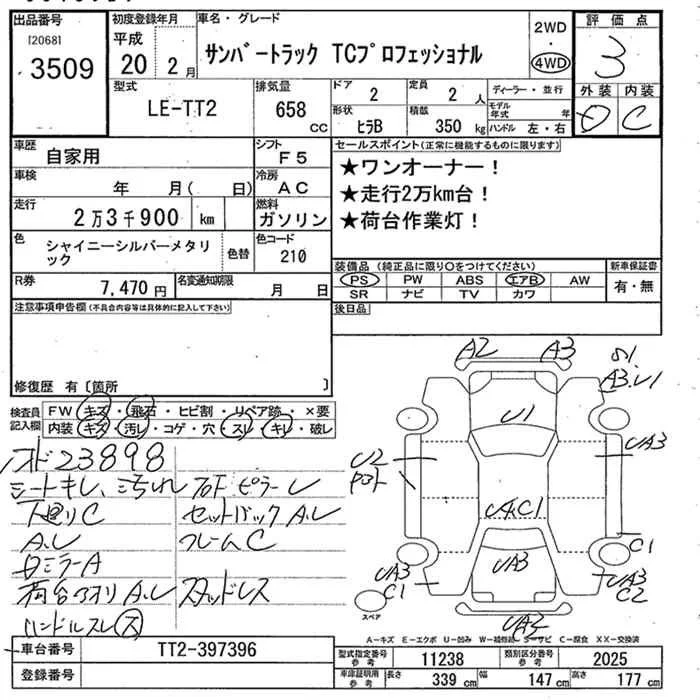 出品番号
[2068]
3509
初度登録年月
平成
20年2月
車名・グレード
サンバートラック TCプロフェッショナル
2WD
・
4WD
評価点
3
外装 内装
D C
型式
LE-TT2
排気量
658
cc
ドア
2
定員
2人
形状
ヒラB
積載
350 kg
ディーラー・並行
モデル年式 年
ハンドル 左・右
車歴
自家用
シフト
F5
車検
年 月( 日)
冷房
AC
走行
2万3千900 km
燃料
ガソリン
色
シャイニーシルバーメタリック
色替
色コード
210
R券
7,470円
名変通知期限
月 日
セールスポイント(正常に機能するものに限ります)
★ワンオーナー!
★走行2万km台!
★荷台作業灯!
装備品 (純正品に限り○をつけてください)
PS PW ABS エアB AW
SR ナビ TV カワ
新車保証書
有・無
後日品
注意事項申告欄(不具合内容等は具体的に記入して下さい)
修復歴 有 [箇所 ]
検査員記入欄
FW キズ・飛石・ヒビ割・リペア跡・×要
内装 キズ・汚し・コゲ・穴・スレ・キレ・破レ
23898
シートキレ、
下廻りC
A.U
ロミラーA
荷台アオリA.U
ハンドルスレ
ピラーU
セットバックA.U
フレームC
スタッドレス
A2
A3
S1
A3.U1
U1
U2
UA3
UA.C1
UA3
C1
UA3
C1
UA3
C2
UA3
スペア
A-キズ E-エクボ U-凹み W-補修跡 S-サビ C-腐食 XX-交換済
車台番号
TT2-397396
登録番号
型式指定番号 参考
11238
類別区分番号 参考
2025
車庫証明用 参考
長さ 339 cm 幅 147 cm 高さ 177 cm